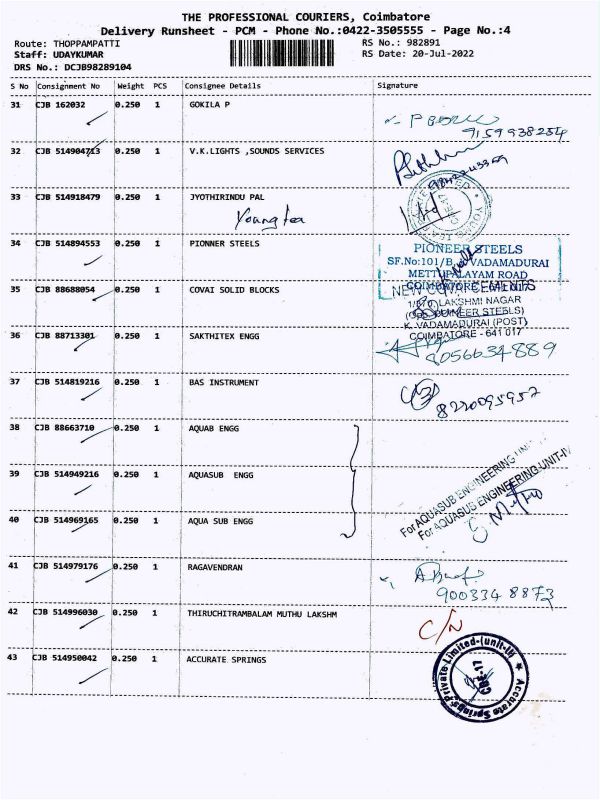 THE PROFESSIONAL COURIERS, Coimbatore
Delivery Runsheet - PCM - Phone No.:0422-3505555 - Page No.:4
Route: THOPPAMPATTI
RS No.: 982891
Staff: UDAYKUMAR
RS Date: 20-Jul-2022
DRS No.: DCJB98289104
S No Consignment No Weight PCS Consignee Details Signature
31 CJB 162032 0.250 1 GOKILA P
9159938254
32 CJB 514904713 0.250 1 V.K.LIGHTS ,SOUNDS SERVICES
33 CJB 514918479 0.250 1 JYOTHIRINDU PAL
Young tea
34 CJB 514894553 0.250 1 PIONNER STEELS
PIONEER STEELS
SF.No:101/B, VADAMADURAI
METTUPALAYAM ROAD
35 CJB 88688054 0.250 1 COVAI SOLID BLOCKS
NEW COVAI CEMENTS
LAKSHMI NAGAR
(OPP. PIONEER STEELS)
K. VADAMADURAI (POST)
COIMBATORE - 641 017
36 CJB 88713301 0.250 1 SAKTHITEX ENGG
9056634889
37 CJB 514819216 0.250 1 BAS INSTRUMENT
8220095957
38 CJB 88663710 0.250 1 AQUAB ENGG
39 CJB 514949216 0.250 1 AQUASUB ENGG
For AQUASUB ENGINEERING UNIT
For AQUASUB ENGINEERING-UNIT-IV
40 CJB 514969165 0.250 1 AQUA SUB ENGG
41 CJB 514979176 0.250 1 RAGAVENDRAN
900334 8873
42 CJB 514996030 0.250 1 THIRUCHITRAMBALAM MUTHU LAKSHM
C/N
43 CJB 514950042 0.250 1 ACCURATE SPRINGS
Accurate Springs Private Limited-(unit-II)
CBE-17